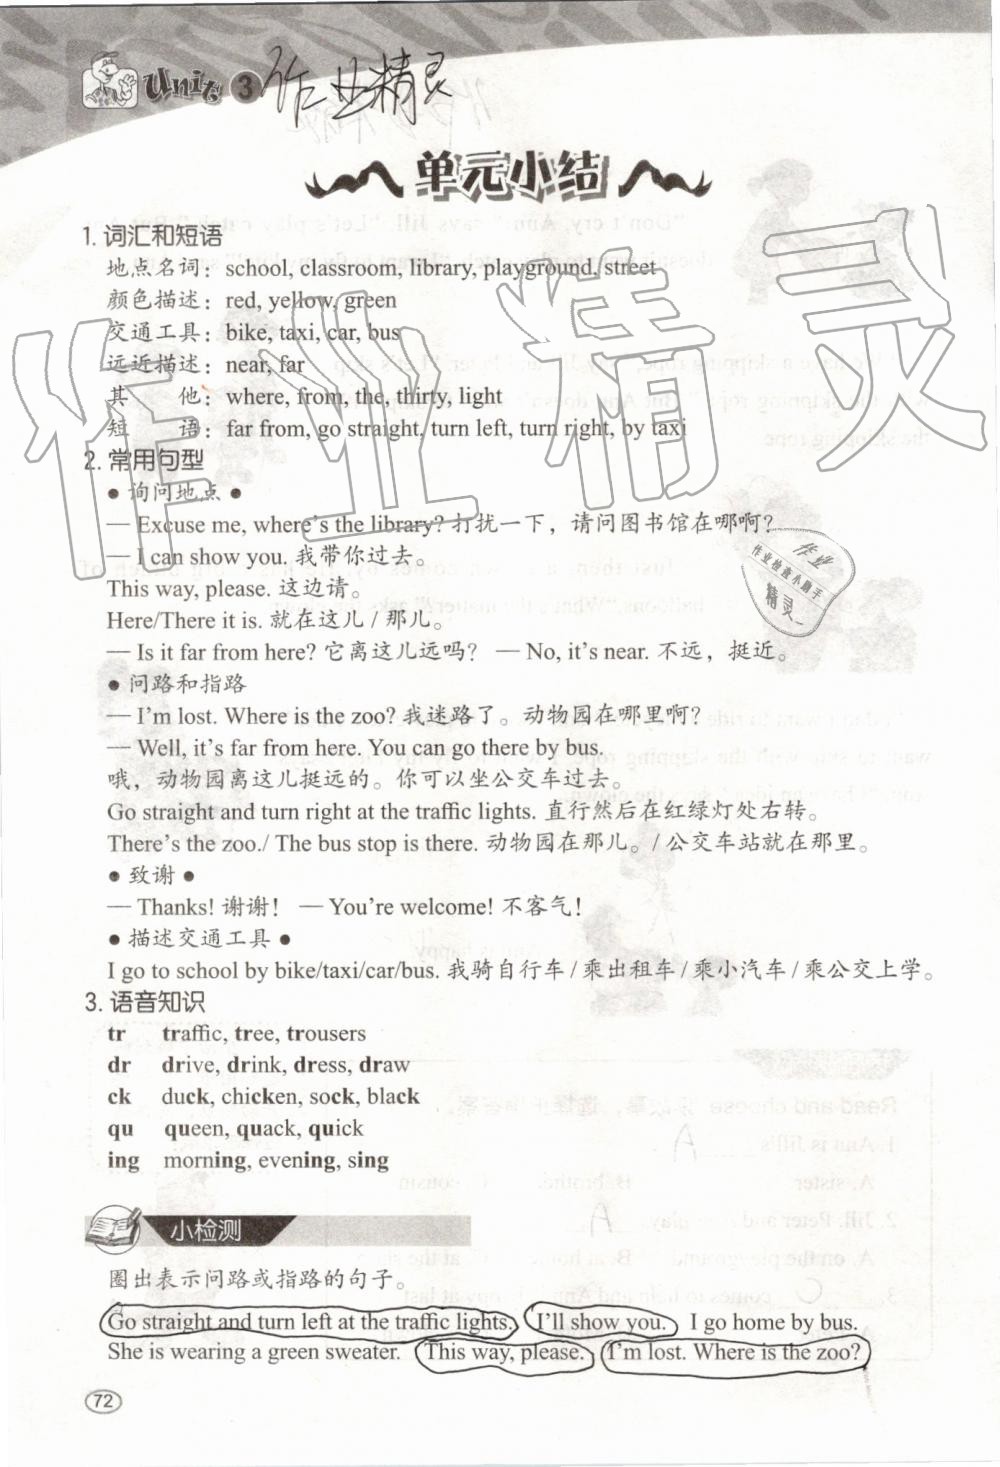 Unit 3 作业精灵
单元小结
1. 词汇和短语
地点名词：school, classroom, library, playground, street
颜色描述：red, yellow, green
交通工具：bike, taxi, car, bus
远近描述：near, far
其 他：where, from, the, thirty, light
短 语：far from, go straight, turn left, turn right, by taxi
2. 常用句型
● 询问地点 ●
— Excuse me, where's the library? 打扰一下，请问图书馆在哪啊？
— I can show you. 我带你过去。
This way, please. 这边请。
Here/There it is. 就在这儿 / 那儿。
— Is it far from here? 它离这儿远吗？ — No, it's near. 不远，挺近。
● 问路和指路
— I'm lost. Where is the zoo? 我迷路了。动物园在哪里啊？
— Well, it's far from here. You can go there by bus.
哦，动物园离这儿挺远的。你可以坐公交车过去。
Go straight and turn right at the traffic lights. 直行然后在红绿灯处右转。
There's the zoo./ The bus stop is there. 动物园在那儿。/ 公交车站就在那里。
● 致谢 ●
— Thanks! 谢谢！ — You're welcome! 不客气！
● 描述交通工具 ●
I go to school by bike/taxi/car/bus. 我骑自行车 / 乘出租车 / 乘小汽车 / 乘公交上学。
3. 语音知识
tr traffic, tree, trousers
dr drive, drink, dress, draw
ck duck, chicken, sock, black
qu queen, quack, quick
ing morning, evening, sing
小检测
圈出表示问路或指路的句子。
Go straight and turn left at the traffic lights. I'll show you. I go home by bus.
She is wearing a green sweater. This way, please. I'm lost. Where is the zoo?
72
作业精灵
作业
作业检查小助手
精灵